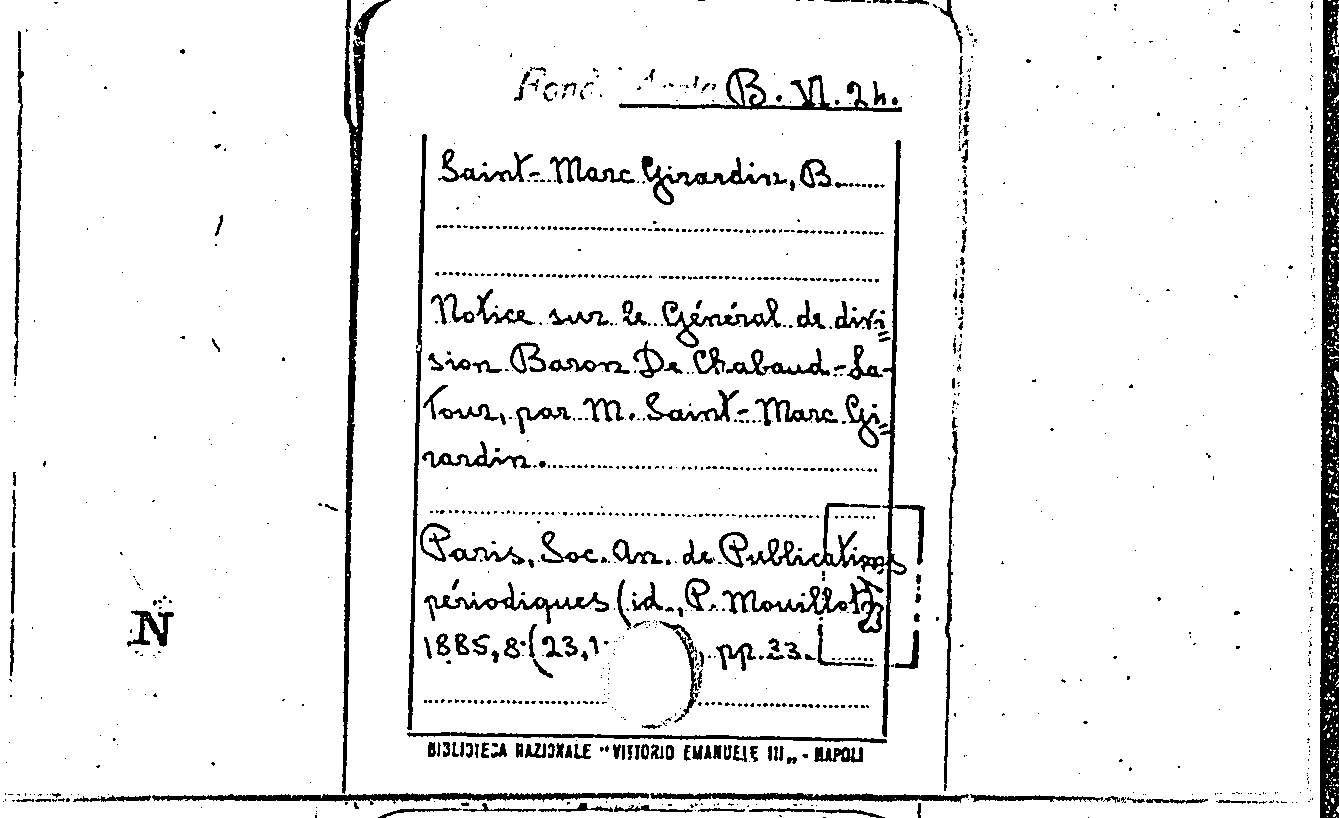 Fond. Aosta B. VI. 24.
Saint-Marc Girardin, B.
Notice sur le Général de divi=
sion Baron De Chabaud-La-
Tour, par M. Saint-Marc Gi=
rardin.
Paris, Soc. An. de Publications
périodiques (id., P. Mouillot)
1885, 8° (23,1 pp. 33.
N
BIBLIOTECA NAZIONALE "VITTORIO EMANUELE III„ - NAPOLI